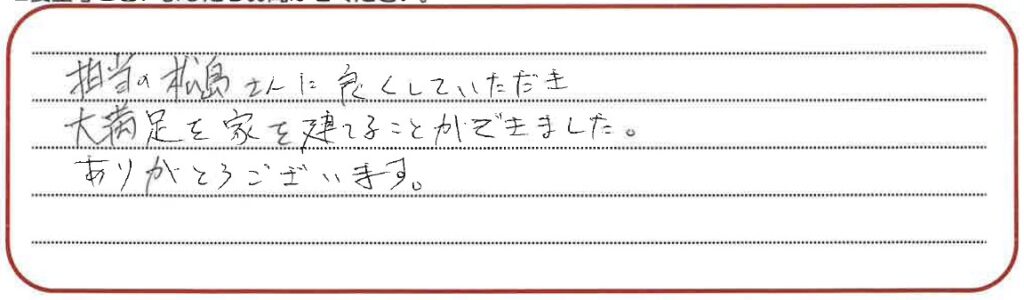 担当の松島さんに良くしていただき
大満足を家を建てることができました。
ありがとうございます。